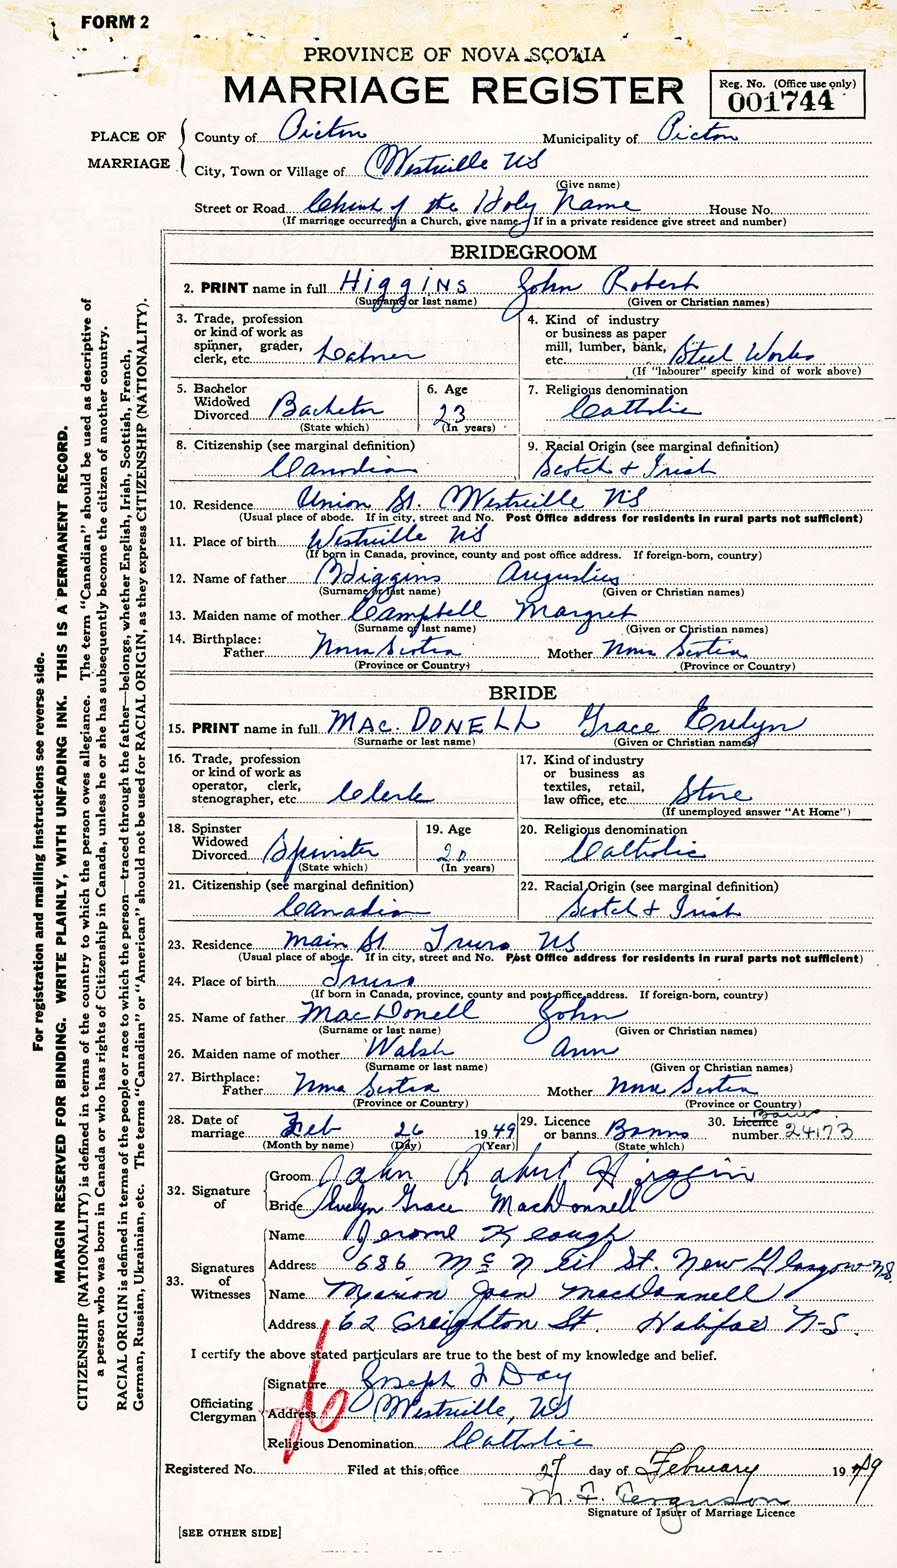 FORM 2
PROVINCE OF NOVA SCOTIA
MARRIAGE REGISTER
Reg. No. (Office use only)
001744
PLACE OF MARRIAGE
County of Picton Municipality of Picton
City, Town or Village of Westville NS
(Give name)
Street or Road Church of the Holy Name House No.
(If marriage occurred in a Church, give name. If in a private residence give street and number)
BRIDEGROOM
2. PRINT name in full Higgins John Robert
(Surname or last name) (Given or Christian names)
3. Trade, profession or kind of work as spinner, grader, clerk, etc. Labrer
4. Kind of industry or business as paper mill, lumber, bank, etc. Steel Works
(If "labourer" specify kind of work above)
5. Bachelor Widowed Divorced Bachelor
(State which)
6. Age 23
(In years)
7. Religious denomination Catholic
8. Citizenship (see marginal definition) Canadian
9. Racial Origin (see marginal definition) Scotch & Irish
10. Residence Union St. Westville NS
(Usual place of abode. If in city, street and No. Post Office address for residents in rural parts not sufficient)
11. Place of birth Westville NS
(If born in Canada, province, county and post office address. If foreign-born, country)
12. Name of father Higgins Augustius
(Surname or last name) (Given or Christian names)
13. Maiden name of mother Campbell Margret
(Surname or last name) (Given or Christian names)
14. Birthplace:
Father Nova Scotia Mother Nova Scotia
(Province or Country) (Province or Country)
BRIDE
15. PRINT name in full MAC. DONELL Grace Evelyn
(Surname or last name) (Given or Christian names)
16. Trade, profession or kind of work as operator, clerk, stenographer, etc. Clerk
17. Kind of industry or business as textiles, retail, law office, etc. Store
(If unemployed answer "At Home")
18. Spinster Widowed Divorced Spinster
(State which)
19. Age 20
(In years)
20. Religious denomination Catholic
21. Citizenship (see marginal definition) Canadian
22. Racial Origin (see marginal definition) Scotch & Irish
23. Residence Main St Truro NS
(Usual place of abode. If in city, street and No. Post Office address for residents in rural parts not sufficient)
24. Place of birth Truro
(If born in Canada, province, county and post office address. If foreign-born, country)
25. Name of father MacDonell John
(Surname or last name) (Given or Christian names)
26. Maiden name of mother Walsh Ann
(Surname or last name) (Given or Christian names)
27. Birthplace:
Father Nova Scotia Mother Nova Scotia
(Province or Country) (Province or Country)
28. Date of marriage Feb 26 1949
(Month by name) (Day) (Year)
29. Licence or banns Banns
(State which)
30. Licence Banns number 24173
32. Signature of
Groom John Robert Higgins
Bride Evelyn Grace MacDonnell
33. Signatures of Witnesses
Name Jerome Keough
Address 686 McNeil St. New Glasgow NS
Name Marion Joan MacDonnell
Address 62 Creighton St. Halifax N-S.
I certify the above stated particulars are true to the best of my knowledge and belief.
Officiating Clergyman
Signature Joseph F Day
Address Westville, NS
Religious Denomination Catholic
Registered No. Filed at this office 27 day of February 1949
M. F. Ferguson
Signature of Issuer of Marriage Licence
[SEE OTHER SIDE]
For registration and mailing instructions see reverse side.
MARGIN RESERVED FOR BINDING. WRITE PLAINLY, WITH UNFADING INK. THIS IS A PERMANENT RECORD.
CITIZENSHIP (NATIONALITY) is defined in terms of the country to which the person owes allegiance. The term "Canadian" should be used as descriptive of
a person who was born in Canada or who has rights of Citizenship in Canada, unless he or she has subsequently become the citizen of another country.
RACIAL ORIGIN is defined in terms of the people or race to which the person—traced through the father—belongs, whether English, Irish, Scottish, French,
German, Russian, Ukrainian, etc. The terms "Canadian" or "American" should not be used for RACIAL ORIGIN, as they express CITIZENSHIP (NATIONALITY).